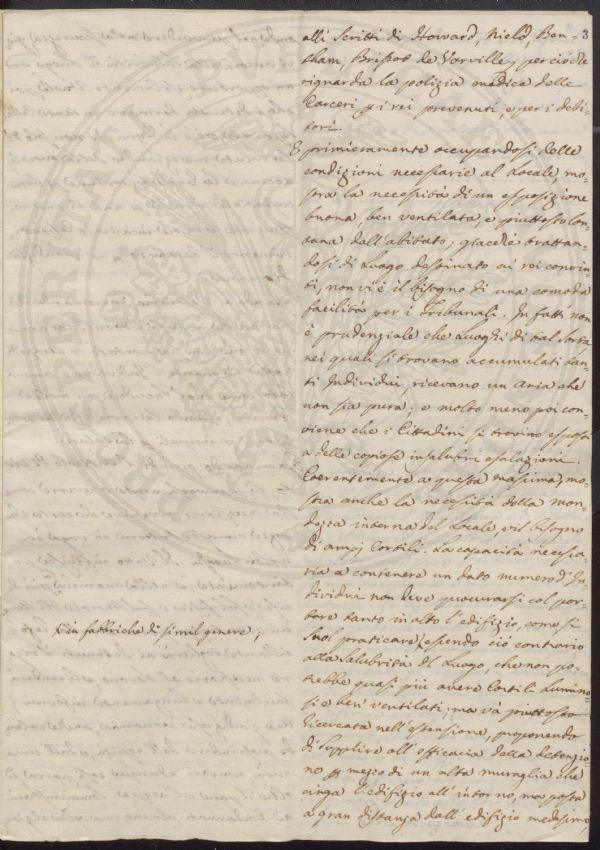 3
alli Scritti di Howard, Nield, Ben-
tham, Brissot de Varville, perciò che
riguarda la polizia medica delle
Carceri p i rei prevenuti, e per i debi-
tori.
E primieramente occupandosi delle
condizioni necessarie al Locale, mo-
stra la necessità di un esposizione
buona, ben ventilata, e piuttosto lon-
tana dall'abitato, giacchè trattan-
dosi di Luogo destinato ai rei convin-
ti, non vi è il bisogno di una comoda
facilità per i Tribunali. In fatti non
è prudenziale che Luoghi di tal sorta,
nei quali si trovano accumulati tan-
ti Individui, ricevano un Aria che
non sia pura; e molto meno poi con-
viene che i Cittadini si trovino esposti
a delle copiose insalubri esalazioni.
Coerentemente a questa massima, mo-
stra anche la necessità della mon-
dezza interna del Locale, e il bisogno
di ampj Cortili. La capacità necessa-
ria a contenere un dato numero d'In-
dividui non deve procurarsi col por-
tare tanto in alto l'edifizio, come si
Suol praticare, essendo ciò contrario
in fabbriche di simil genere,
alla Salubrità del Luogo, che non po-
trebbe quasi più avere Cortili Lumino-
si e ben ventilati; ma và piuttosto
ricercata nell'estensione, proponendo
di supplire all'efficacia della detenzio-
ne p mezzo di un alta muraglia che
cinga l'edifizio all'intorno, ma posta
a gran distanza dall'edifizio medesimo,